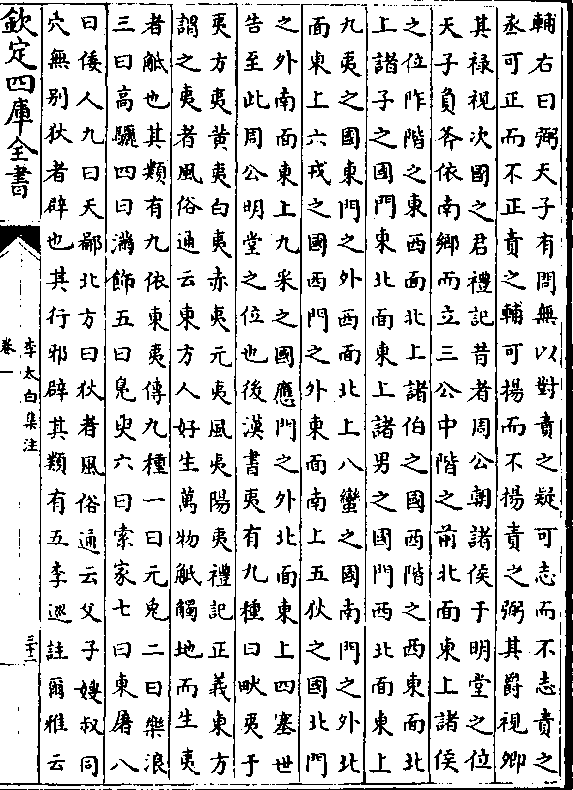 輔右曰弼天子有問無以對責之疑可志而不志責之
丞可正而不正責之輔可揚而不揚責之弼其爵視卿
其禄視次國之君禮記昔者周公朝諸侯于明堂之位
天子負斧依南鄉而立三公中階之前北面東上諸侯
之位阼階之東西面北上諸伯之國西階之西東面北
上諸子之國門東北面東上諸男之國門西北面東上
九夷之國東門之外西面北上八蠻之國南門之外北
面東上六戎之國西門之外東面南上五狄之國北門
之外南面東上九采之國應門之外北面東上四塞世
告至此周公明堂之位也後漢書夷有九種曰畎夷于
夷方夷黄夷白夷赤夷元夷風夷陽夷禮記正義東方
謂之夷者風俗通云東方人好生萬物觝觸地而生夷
者觝也其類有九依東夷傳九種一曰元兎二曰樂浪
三曰高驪四曰滿飾五曰鳬臾六曰索家七曰東屠八
曰倭人九曰天鄙北方曰狄者風俗通云父子嫂叔同
穴無别狄者辟也其行邪辟其類有五李廵註爾雅云
欽定四庫全書
李太白集注
卷一
三十二